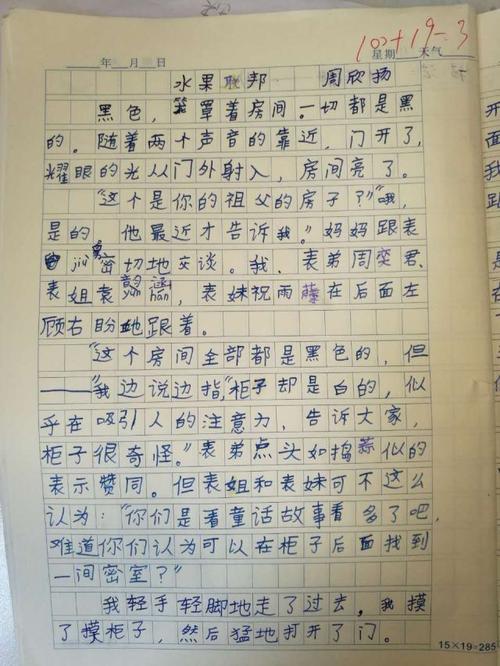 10+19-3
年 月 日 星期 天气
水果联邦 周欣扬
黑色，笼罩着房间。一切都是黑
的。随着两个声音的靠近，门开了，
耀眼的光从门外射入，房间亮了。
“这个是你的祖父的房子？”“哦，
是的，他最近才告诉我。”妈妈跟表
jiu密切地交谈。我、表弟周奕君、
表姐袁韵yùn涵hán，表妹祝雨藤在后面左
顾右盼地跟着。
“这个房间全部都是黑色的，但
——”我边说边指，“柜子却是白的，似
乎在吸引人的注意力，告诉大家，
柜子很奇怪。”表弟点头如捣蒜似的
表示赞同。但表姐和表妹可不这么
认为：“你们是看童话故事看多了吧，
难道你们认为可以在柜子后面找到
一间密室？”
我轻手轻脚地走了过去，我摸
了摸柜子，然后猛地打开了门。
15×19=285